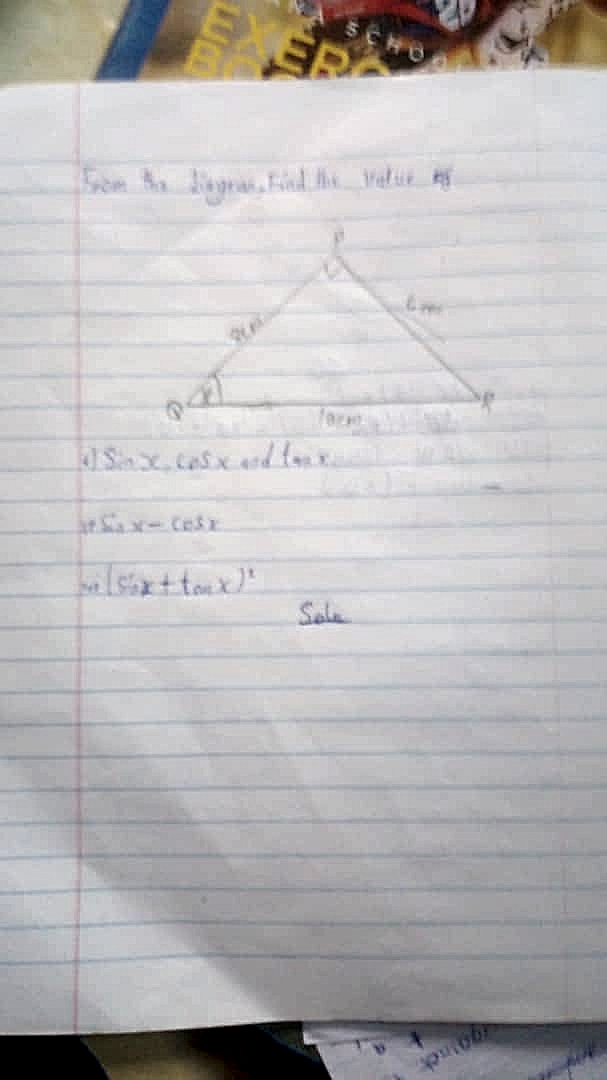 EXERC
SCHOO
From the diagram, Find the value of
P
8cm
6cm
Q
x
R
10cm
i) Sin x, cos x and tan x
ii) Sin x - cos x
iii) (Sin x + tan x)²
Soln
against